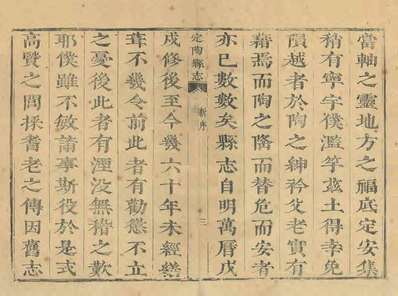 當軸之靈地方之福底定安集
稍有寧宇僕濫竽茲土得幸免
隕越者於陶之紳衿父老實有
藉焉而陶之隆而替危而安者
亦已數數矣縣志自明萬曆戊
定陶縣志 新序 三
戌修後至今幾六十年未經纂
葺不幾令前此者有勸懲不立
之憂後此者有湮没無稽之歎
耶僕雖不敏請事斯役於是式
高賢之閭採耆老之傳因舊志